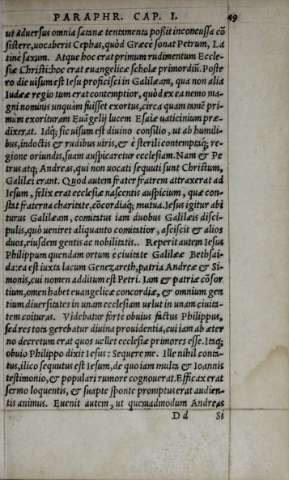 PARAPHR. CAP. I. 49
ut aduersus omnia satanæ tentamenta possit inconcussa cō
sistere, uocaberis Cephas, quòd Græce sonat Petrum, La
tine saxum. Atque hoc erat primum rudimentum Eccle-
siæ Christi: hoc erat euangelicæ scholæ primordiū. Poste
ro die uisum est Iesu proficisci in Galilæam, qua non alia
Iudææ regio tum erat contemptior, quòd ex ea nemo ma-
gni nominis unquàm fuisset exortus, circa quam tamē pri-
mùm exorituram Euāgelij lucem Esaiæ uaticinium præ-
dixerat. Idq; sic uisum est diuino consilio, ut ab humili-
bus, indoctis & rudibus uiris, & è sterili contemptaq; re-
gione oriundis, suam auspicaretur ecclesiam. Nam & Pe
trus atq; Andreas, qui non uocati sequuti sunt Christum,
Galilæi erant. Quod autem frater fratrem attraxerat ad
Iesum, felix erat ecclesiæ nascentis auspicium, quæ con-
stat fraterna charitate, cōcordiaq; mutua. Iesus igitur abi
turus Galilæam, comitatus iam duobus Galilæis disci-
pulis, quò ueniret aliquanto comitatior, asciscit & alios
duos, eiusdem gentis ac nobilitatis. Reperit autem Iesus
Philippum quendam ortum è ciuitate Galilææ Bethsai-
da: ea est iuxta lacum Genezareth, patria Andreæ & Si-
monis, cui nomen additum est Petri. Iam & patriæ cōsor
tium, omen habet euangelicæ concordiæ, & omnium gen
tium diuersitates in unam ecclesiam uelut in unam ciuita-
tem coituras. Videbatur fortè obuius factus Philippus,
sed res tota gerebatur diuina prouidentia, cui iam ab æter
no decretum erat quos uellet ecclesiæ primores esse. Itaq;
obuio Philippo dixit Iesus: Sequere me. Ille nihil conta-
tus, ilico sequutus est Iesum, de quo iam multa & Ioannis
testimonio, & populari rumore cognouerat. Efficax erat
sermo loquentis, & suapte sponte promptus erat audien-
tis animus. Euenit autem, ut quemadmodum Andreas
D d Si